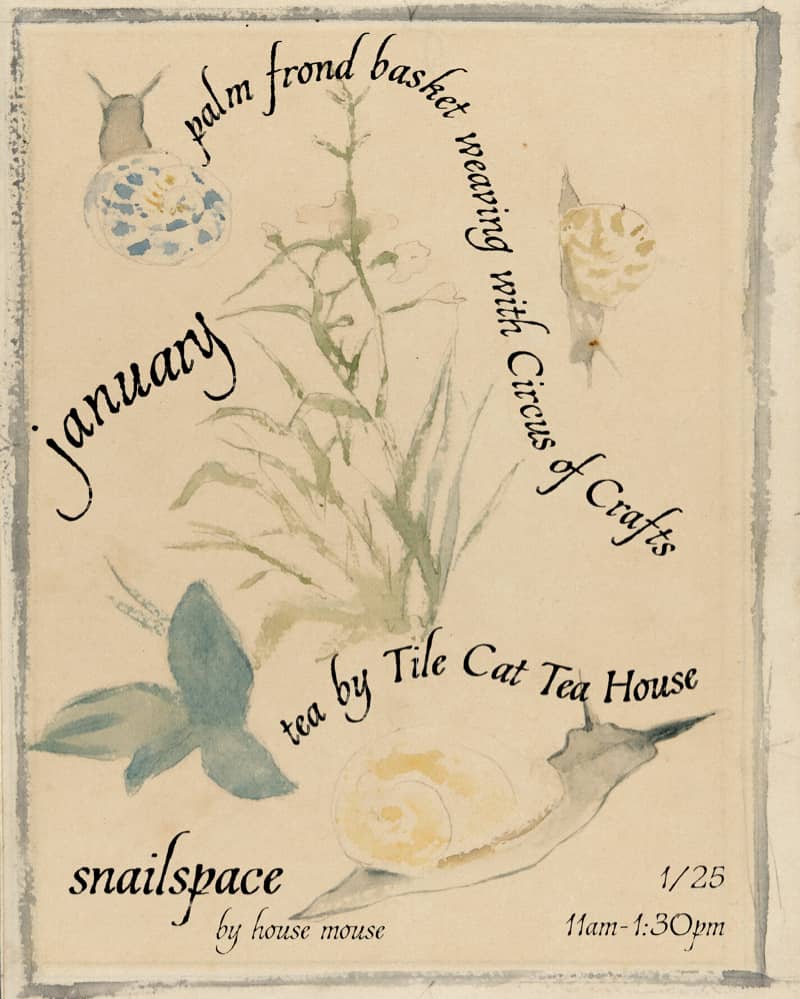 palm frond basket weaving with Circus of Crafts
january
tea by Tile Cat Tea House
snailspace
by house mouse
1/25
11am-1:30pm